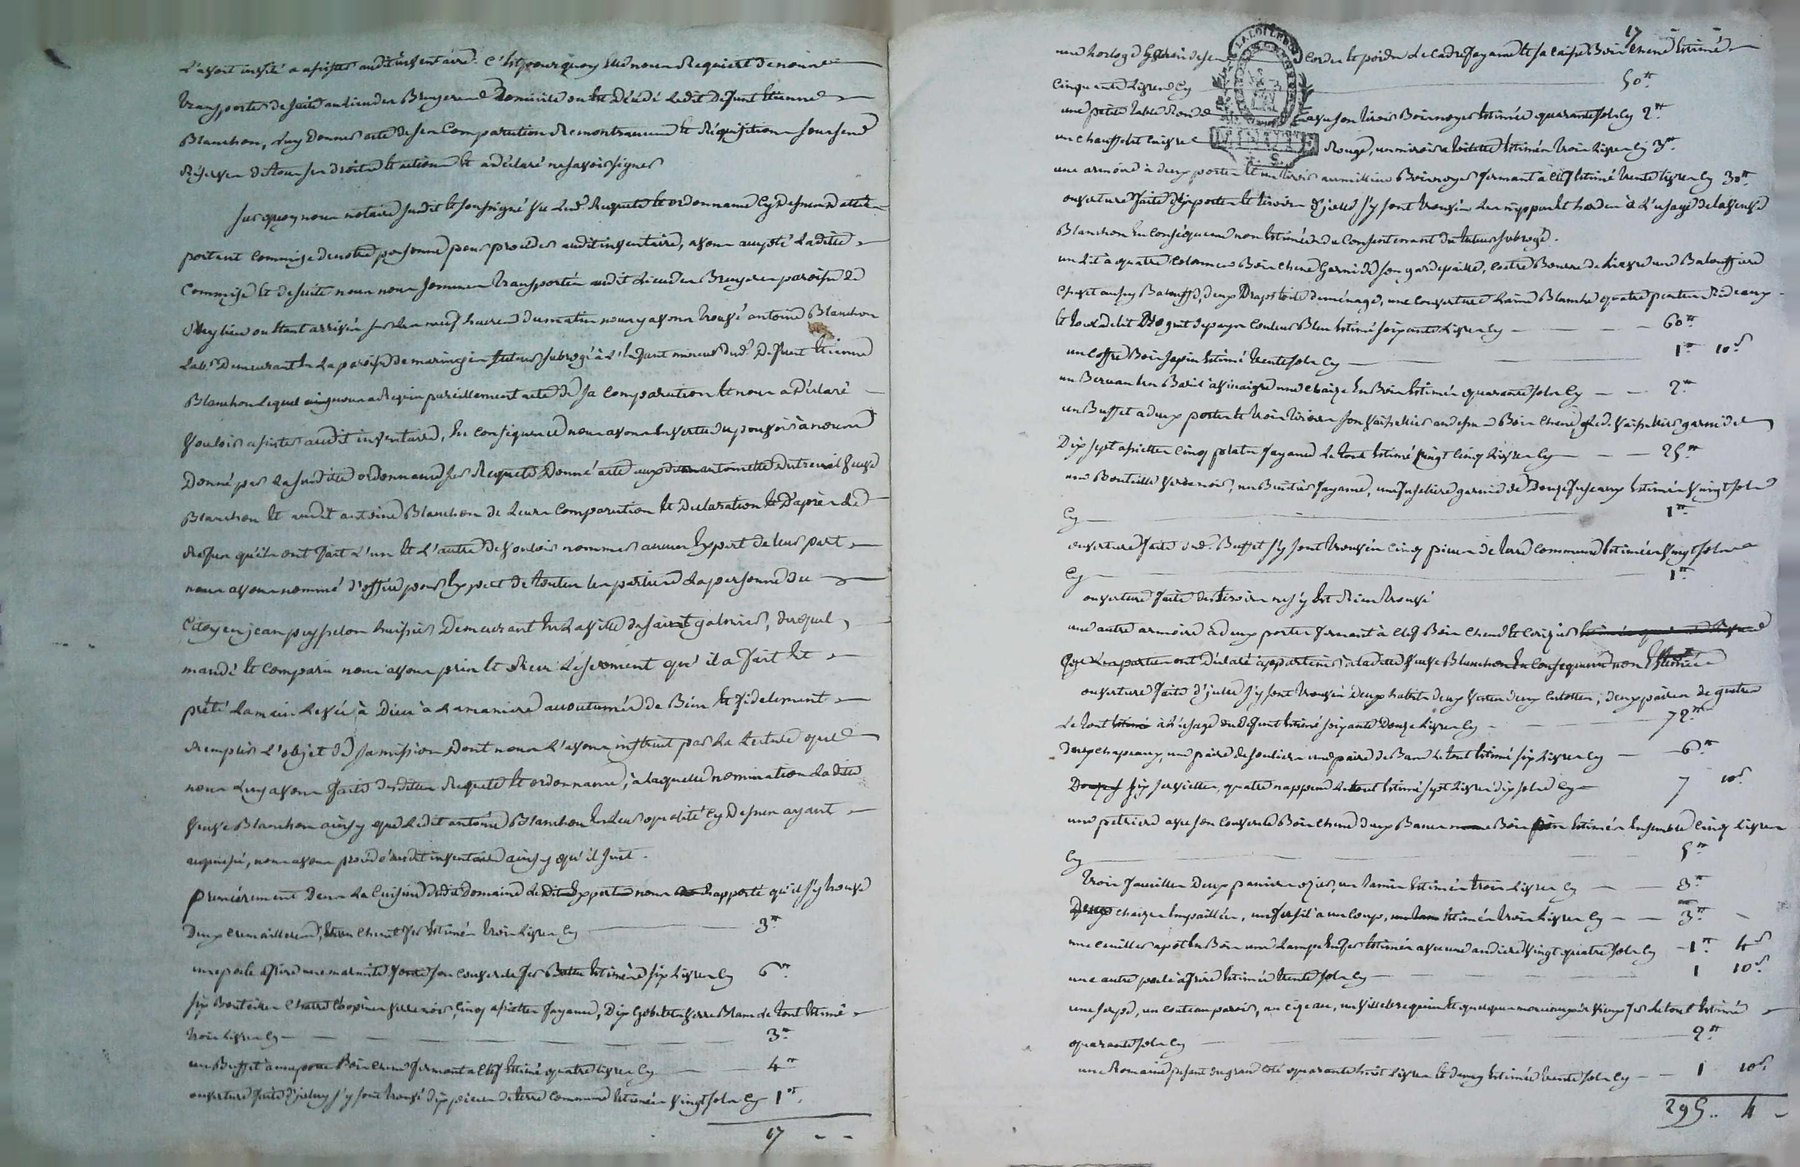 L'avoir invité a assister audit inventaire. C'est pourquoy elle nous Requiert de nous
transporter de suite au lieu des Bruyeres Domicile ou Est Décédé Ledit Defunt Etienne
Blanchon, Luy donner acte de ses Comparution Remontrances et Réquisition sous ses
Réserves de tous ses droits et actions et a déclaré ne savoir signer
Sur quoy nous notaire susdit et soussigné vu Lesd. Requete et ordonnance Cy Dessus dattée
portant Commise de notre personne pour procéder audit inventaire, avons accepté Ladite
Commise et de suite nous nous sommes transportés audit Lieu des Bruyeres paroisse de
ou Etant arrivés sur Les neuf heures du matin nous y avons trouvé antoine Blanchon
Lab.r Demeurant En La paroisse de maringes tuteur subrogé à L'Enfant mineur dud.t Defunt Etienne
Blanchon Lequel nous a Requis pareillement acte de sa Comparution et nous a Déclaré
vouloir assister audit inventaire, En conséquence nous avons En vertu du pouvoir à nous
Donné par La susditte ordonnance sur Requete Donné acte antoinette dutreuil veuve
Blanchon et audit antoine Blanchon de Leurs Comparution et Declaration et D'après Le
Refus qu'ils ont fait L'un Et L'autre de vouloir nommer aucun Expert de Leur part
nous avons nommé d'office pour Expert de toutes Les parties La personne du
Citoyen jean puypelon huissier Demeurant En La ville de saint galmier, duquel
mandé et Comparu nous avons pris et Reçu Le serment qu'il a fait Et
prêté La main Levée à Dieu à La maniere accoutumée de Bien Et fidelement
Remplir L'objet de sa mission Dont nous L'avons instruit par La Lecture que
nous Luy avons faite desdittes Requete et ordonnance, à Laquelle nomination Ladite
veuve Blanchon ainsy que Ledit antoine Blanchon En Leurs qualité Cy Dessus ayant
acquiescé, nous avons procédé audit inventaire ainsy qu'il suit.
premierement Dans La Cuisine dudit Domaine Ledit Expert nous a Rapporté qu'il s'y trouve
Deux Cremailleres, Chenet fer Estimés trois Livres Cy 3lt
une poele a frire une marmite fonte son Couvercle fer Estimés six Livres Cy 6lt
six Bouteilles verre noir, Cinq assiettes fayance, Dix Gobelets verre Blanc Le tout Estimé
trois Livres Cy 3lt
un Buffet à une porte Bois Chene fermant a Clef Estimé quatre Livres Cy 4lt
ouverture faite d'iceluy s'y sont trouvé dix pieces de terre Commune Estimées vingt sols Cy 1lt
17 - -
17
une horloge Garnie de ses Cordes et poids Le Cadre fayance Et sa Caisse Bois Chene Estimé
Cinquante Livres Cy 50lt
une petite table Ronde avec son tiroir Bois noyer Estimée quarante sols Cy 2lt
LA LOI LE ROI
MINUTE
un chauffe lit Cuivre Rouge, un miroir Estimés trois Livres Cy 3lt
une armoire à deux portes et un tiroir au milieu Bois noyer fermant à Clef Estimé trente Livres Cy 30lt
ouverture faite des portes Et tiroir d'icelle s'y sont trouvés Les nippes et hardes à L'usage de la veuve
Blanchon En Conséquence non Estimées du Consentement du tuteur subrogé.
un Lit à quatre Colonnes Bois Chene Garni de son garde paille, Coetre Bourre de une Balouffiere
Chevet aussy Balouffe, deux Draps toile de ménage, une Couverture Laine Blanche quatre pentes Rideaux
et tour de Lit Droguet de pays Couleur Bleu Estimé soixante Livres Cy 60lt
un Coffre Bois sapin Estimé trente sols Cy 1lt 10s
un une chaise En Bois Estimés quarante sols Cy 2lt
un Buffet a deux portes Et trois tiroirs son vaisselier au dessus Bois Chene Led. vaisselier garni de
Dix sept assiettes Cinq plats fayance Le tout Estimé vingt Cinq Livres Cy 25lt
une Bouteille verre noir, un Benitier fayance, une fuseliere garnie de Douze fuseaux Estimés vingt sols
Cy 1lt
ouverture faite dud. Buffet s'y sont trouvés Cinq pieces de terre Commune Estimées vingt sols
Cy 1lt
ouverture faite des tiroirs ne s'y Est Rien trouvé
une autre armoire a deux portes fermant à Clef Bois Chene et Cerizier
que Les parties ont Déclaré appartenir à Ladite veuve Blanchon En Conséquence non Estimée
ouverture faite d'icelle s'y sont trouvés deux habits deux vestes deux Culottes, deux paires de guetres
Le tout à L'usage du Defunt Estimé soixante Douze Livres Cy 72lt
deux chapeaux, une paire de souliers une paire de Bas Le tout Estimé six Livres Cy 6lt
six serviettes, quatre nappes Le tout Estimé sept Livres dix sols Cy 7 10s
une petriere avec son Couvercle Bois Chene deux Bancs Bois Estimés Ensemble Cinq Livres
Cy 5lt
trois faucilles Deux paniers ozier, un tamis Estimés trois Livres Cy 3lt
chaizes Empaillées, un fusil a un Coup, Estimés trois Livres Cy 3lt
une Cuillier a pot En Bois une Lampe En fer Estimés avec une andiere vingt quatre sols Cy 1lt 4s
une autre poele à frire Estimée trente sols Cy 1 10s
une serpe, un Couteau parois, un Cizeau, un villebrequin Et quelques morceaux vieux fer Le tout Estimé
quarante sols Cy 2lt
une Romaine pesant du grand Coté quarante huit Livres Et demy Estimée trente sols Cy 1 10s
295.. 4 -